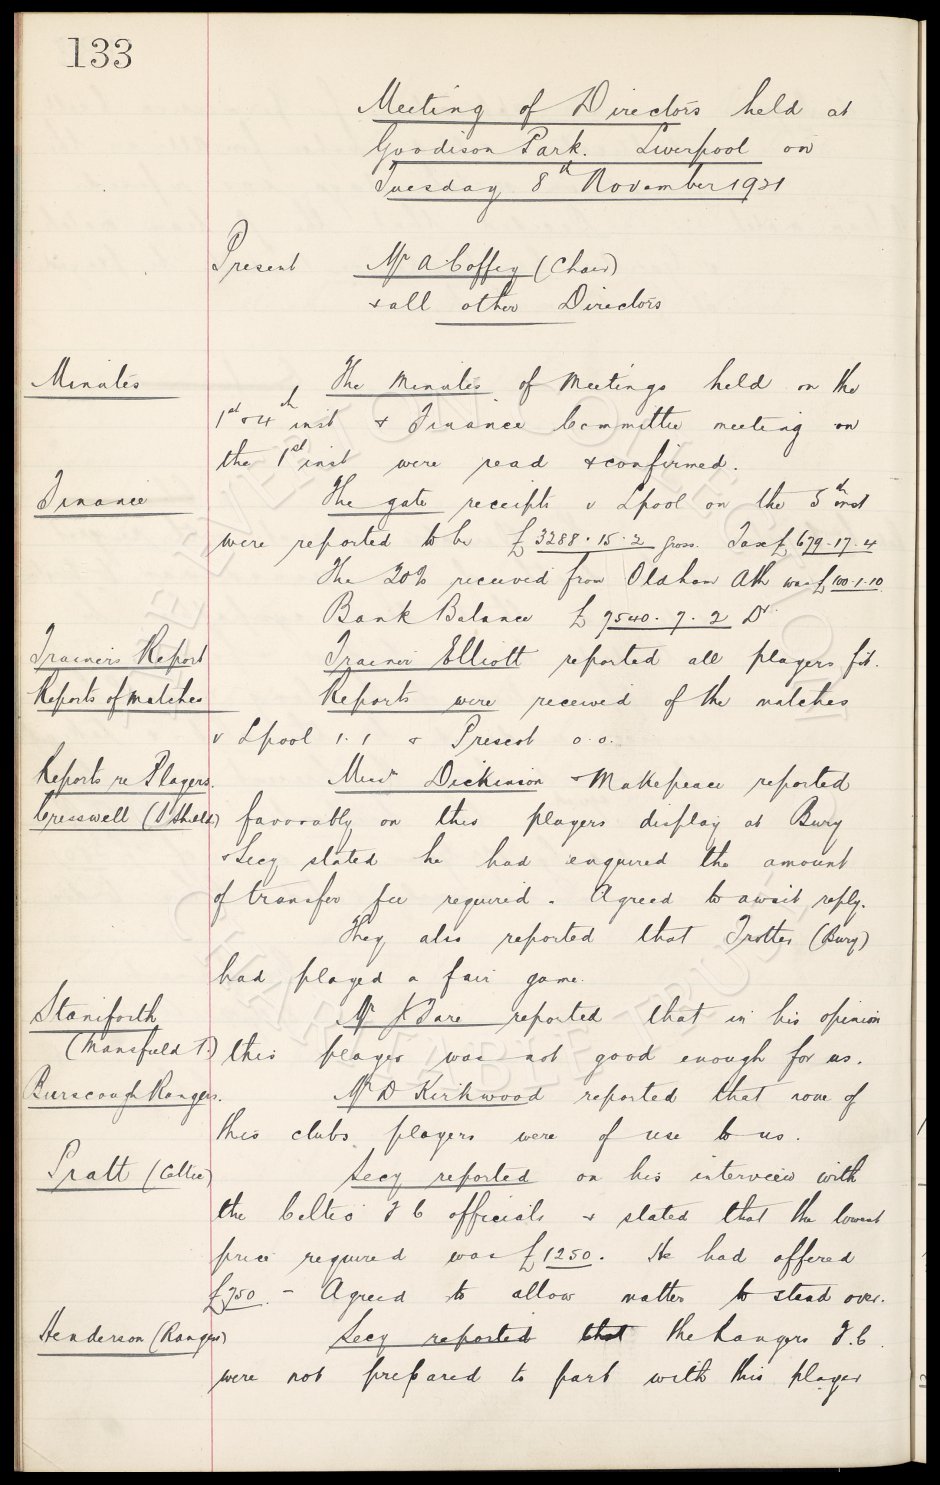 133
Meeting of Directors held at
Goodison Park. Liverpool on
Tuesday 8th November 1921
Present Mr A Coffey (Chair)
+ all other Directors
Minutes The Minutes of Meetings held on the
1st & 4th inst & Finance Committee meeting on
the 1st inst were read & confirmed.
Finance The gate receipts v Lpool on the 5th inst
were reported to be £3288.15.2 gross. Tax £679-17-4
The 20% received from Oldham Ath was £100-1-10.
Bank Balance £7540.7.2 Dr
Trainers Report Trainer Elliott reported all players fit.
Reports of Matches Reports were received of the matches
v Lpool 1.1 & Prescot 0.0.
Reports re Players. Messrs Dickinson & Makepeace reported
Cresswell (S Shields) favorably on this players display at Bury
& Secy stated he had enquired the amount
of transfer fee required. Agreed to await reply.
They also reported that Trotter (Bury)
had played a fair game.
Staniforth Mr J Fare reported that in his opinion
(Mansfield T.) this player was not good enough for us.
Burscough Rangers. Mr D Kirkwood reported that none of
this clubs players were of use to us.
Pratt (Celtic) Secy reported on his interview with
the Celtic F C officials & stated that the lowest
price required was £1250. He had offered
£750. - Agreed to allow matter to stand over.
Henderson (Rangers) Secy reported that the Rangers F.C.
were not prepared to part with this player
THE EVERTON COLLECTION
CHARITABLE TRUST